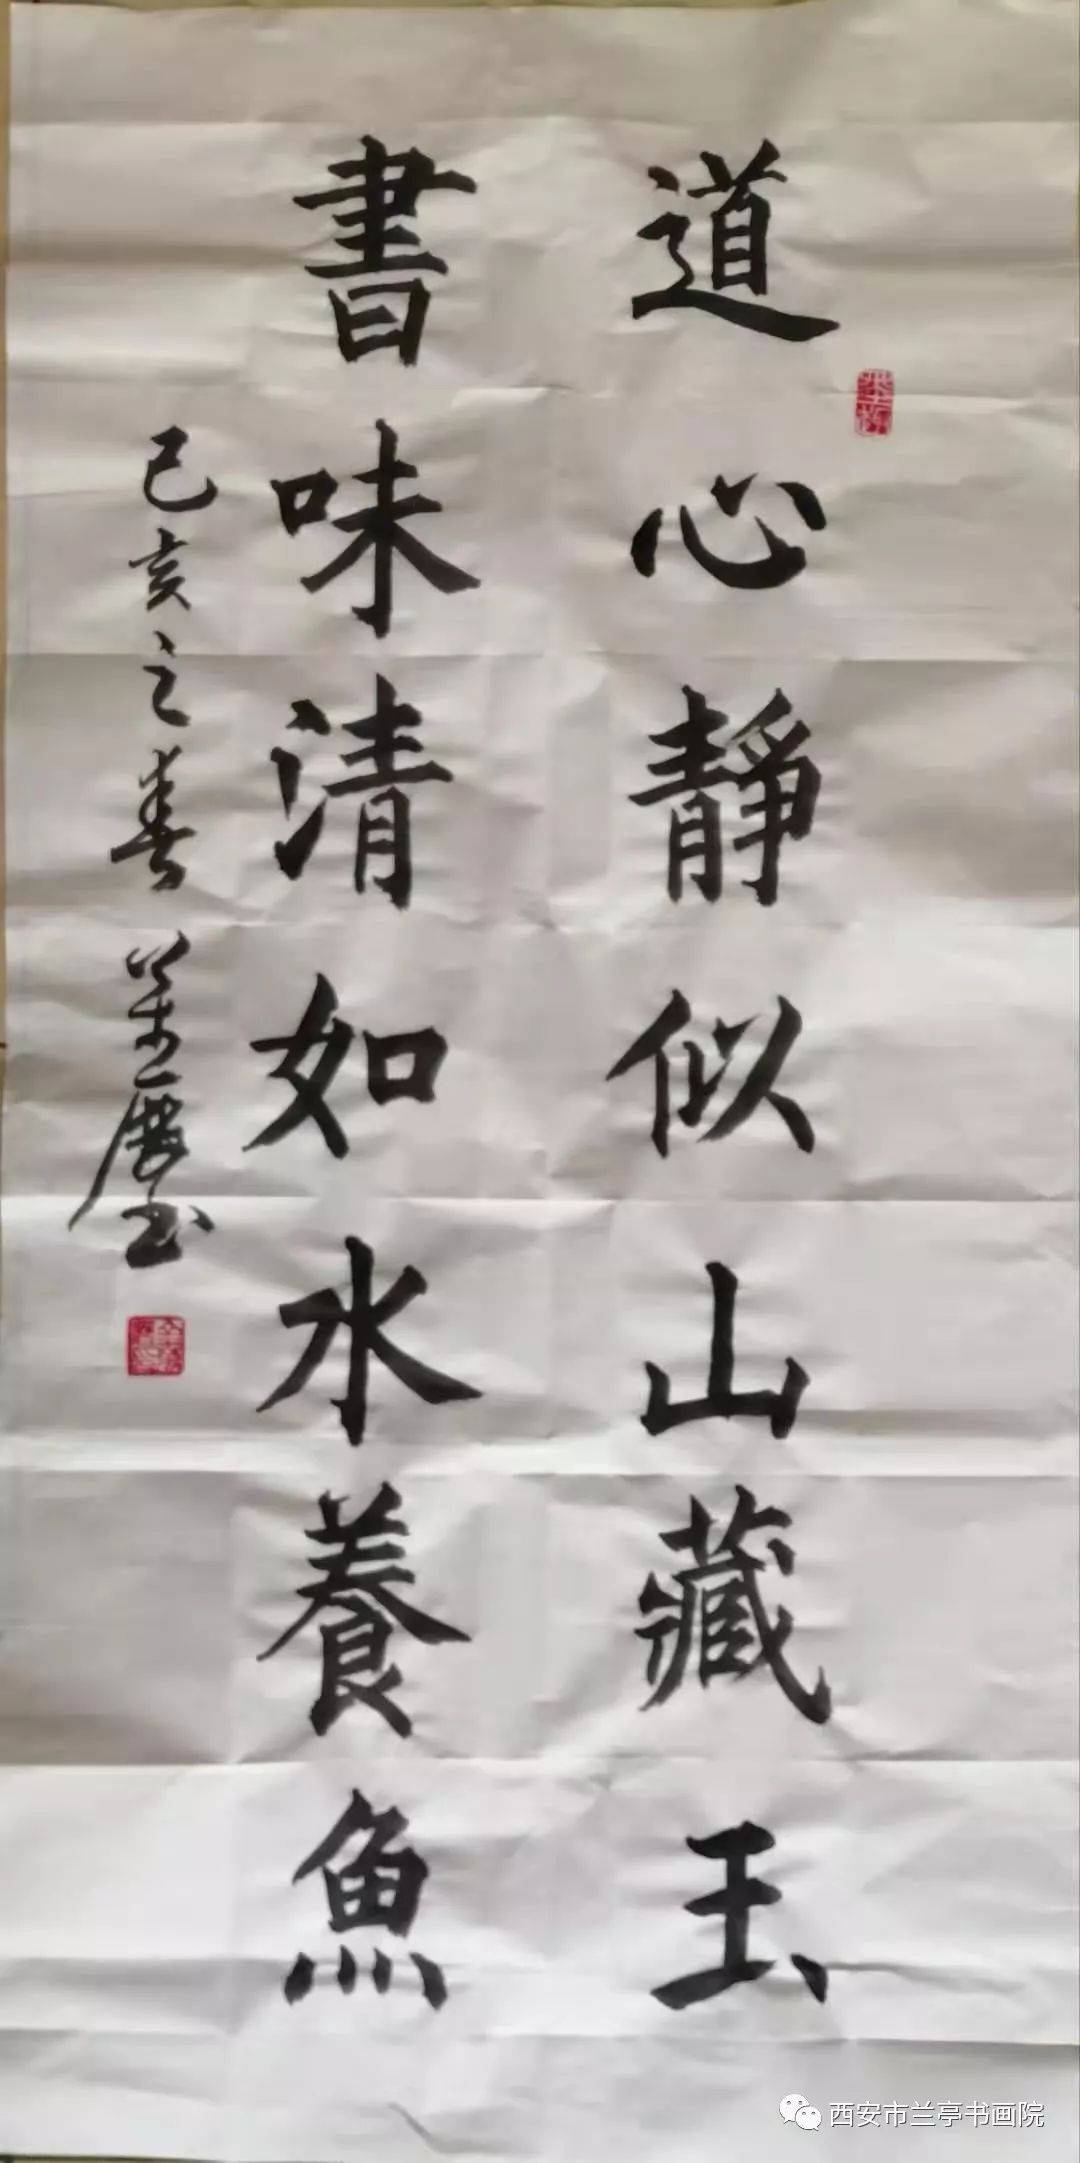 道心靜似山藏玉
書味清如水養魚
己亥之春
书
西安市兰亭书画院